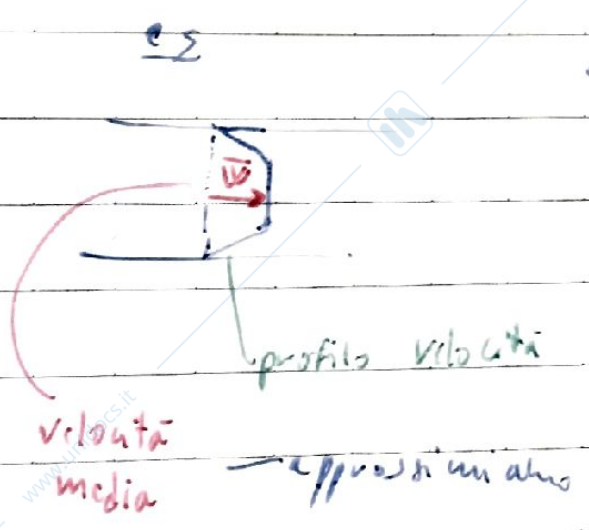 es
w̅
profilo velocità
velocità
media
approssimiamo
www.unidocs.it